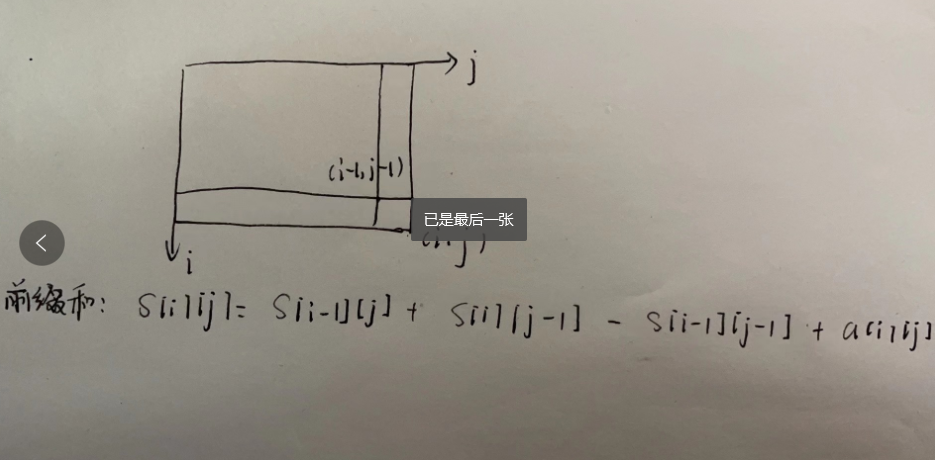 j
(i-1,j-1)
已是最后一张
i
前缀和: S[i][j]= S[i-1][j] + S[i][j-1] - S[i-1][j-1] + a[i][j]